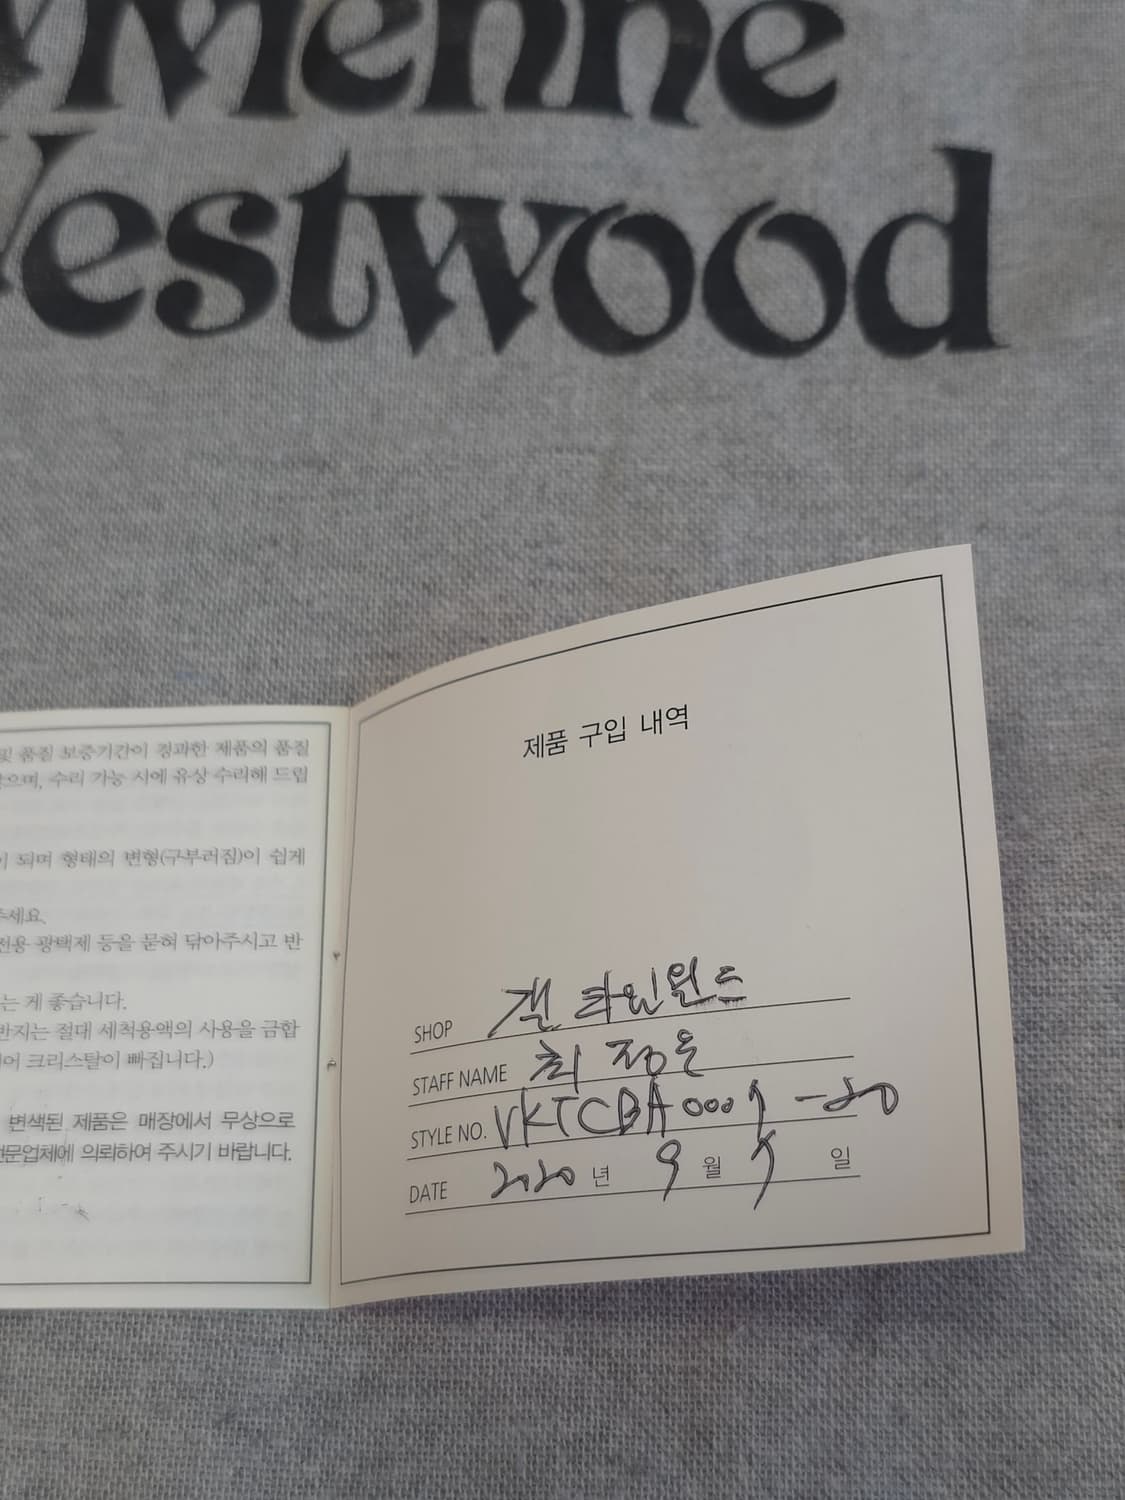 Vivienne
Westwood
및 품질 보증기간이 경과한 제품의 품질
않으며, 수리 가능 시에 유상 수리해 드립
이 되며 형태의 변형(구부러짐)이 쉽게
주세요.
전용 광택제 등을 묻혀 닦아주시고 반
는 게 좋습니다.
반지는 절대 세척용액의 사용을 금합
어 크리스탈이 빠집니다.)
변색된 제품은 매장에서 무상으로
전문업체에 의뢰하여 주시기 바랍니다.
제품 구입 내역
SHOP 갤 타임월드
STAFF NAME 최 정은
STYLE NO. VKTCBA0007-20
DATE 2020년 9월 7일